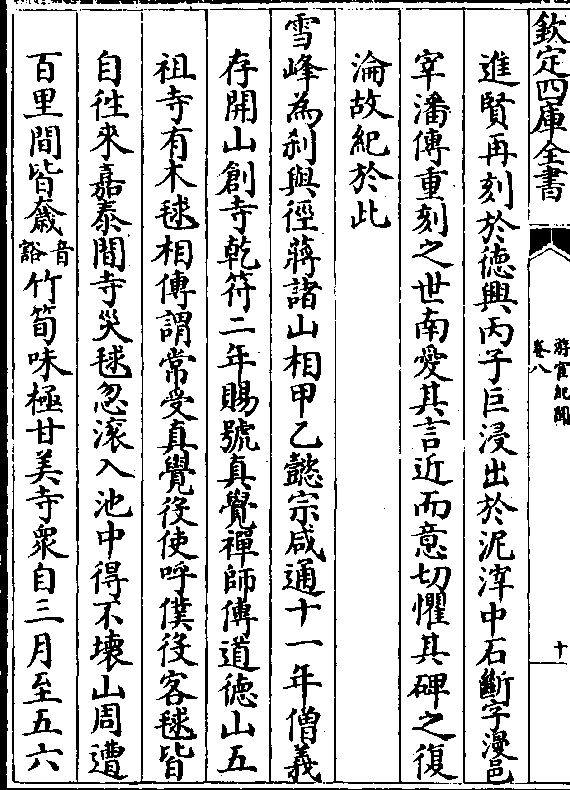 欽定四庫全書
游宦紀聞
卷八
十
進賢再刻於徳興丙子巨浸出於泥滓中石斷字漫邑
宰潘傳重刻之世南愛其言近而意切懼其碑之復
淪故紀於此
雪峰為刹與徑蔣諸山相甲乙懿宗咸通十一年僧義
存開山創寺乾符二年賜號真覺禪師傳道徳山五
祖寺有木毬相傳謂常受真覺役使呼僕役客毬皆
自徃來嘉泰間寺災毬忽滚入池中得不壊山周遭
百里間皆𥳽音谽竹筍味極甘美寺衆自三月至五六